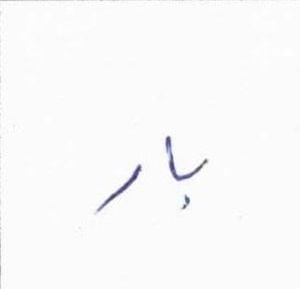 بار